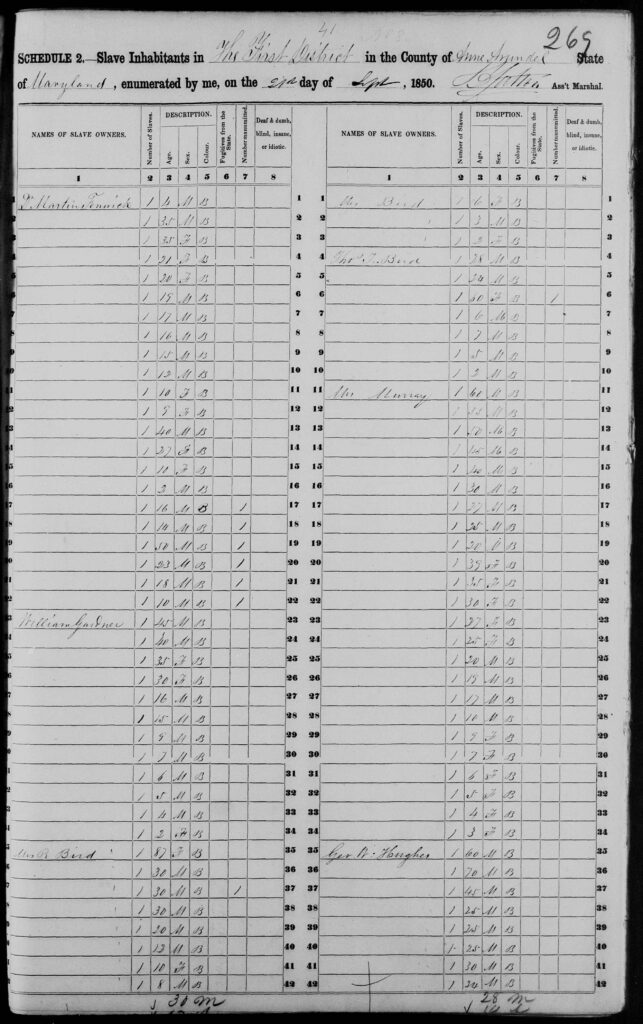 41
269
SCHEDULE 2.—Slave Inhabitants in The First District in the County of Anne Arundel State
of Maryland, enumerated by me, on the 2nd day of Sept, 1850. Ass't Marshal.
NAMES OF SLAVE OWNERS. Number of Slaves. DESCRIPTION. Age. Sex. Colour. Fugitives from the State. Number manumitted. Deaf & dumb, blind, insane, or idiotic.
1 2 3 4 5 6 7 8
Dr Martin Fenwick 1 4 M B 1
1 35 M B 2
1 35 F B 3
1 21 F B 4
1 20 F B 5
1 19 M B 6
1 17 M B 7
1 16 M B 8
1 15 M B 9
1 12 M B 10
1 10 F B 11
1 9 F B 12
1 40 M B 13
1 27 F B 14
1 10 F B 15
1 2 M B 16
1 16 M B 1 17
1 14 M B 1 18
1 50 M B 1 19
1 23 M B 1 20
1 18 M B 1 21
1 10 M B 1 22
William Gardner 1 45 M B 23
1 40 M B 24
1 35 F B 25
1 30 F B 26
1 16 M B 27
1 15 M B 28
1 9 M B 29
1 7 M B 30
1 6 M B 31
1 5 M B 32
1 4 M B 33
1 2 F B 34
Bird 1 87 F B 35
1 30 M B 36
1 30 M B 1 37
1 30 M B 38
1 20 M B 39
1 12 M B 40
1 10 F B 41
1 8 M B 42
30 M
NAMES OF SLAVE OWNERS. Number of Slaves. DESCRIPTION. Age. Sex. Colour. Fugitives from the State. Number manumitted. Deaf & dumb, blind, insane, or idiotic.
1 2 3 4 5 6 7 8
1 Bird 1 6 F B 1
2 1 3 M B 2
3 1 2 F B 3
4 Thos. Bird 1 28 M B 4
5 1 24 M B 5
6 1 60 F B 1 6
7 1 6 M B 7
8 1 7 M B 8
9 1 5 M B 9
10 1 2 M B 10
11 Murray 1 60 M B 11
12 1 M B 12
13 1 50 M B 13
14 1 M B 14
15 1 40 M B 15
16 1 30 M B 16
17 1 27 M B 17
18 1 25 M B 18
19 1 20 B 19
20 1 39 F B 20
21 1 35 F B 21
22 1 30 F B 22
23 1 27 F B 23
24 1 25 F B 24
25 1 20 M B 25
26 1 19 M B 26
27 1 17 M B 27
28 1 10 M B 28
29 1 9 F B 29
30 1 7 F B 30
31 1 6 F B 31
32 1 5 F B 32
33 1 4 F B 33
34 1 3 F B 34
35 Geo W. Hughes 1 60 M B 35
36 1 70 M B 36
37 1 45 M B 37
38 1 25 M B 38
39 1 25 M B 39
40 1 25 M B 40
41 1 30 M B 41
42 1 24 M B 42
28 M